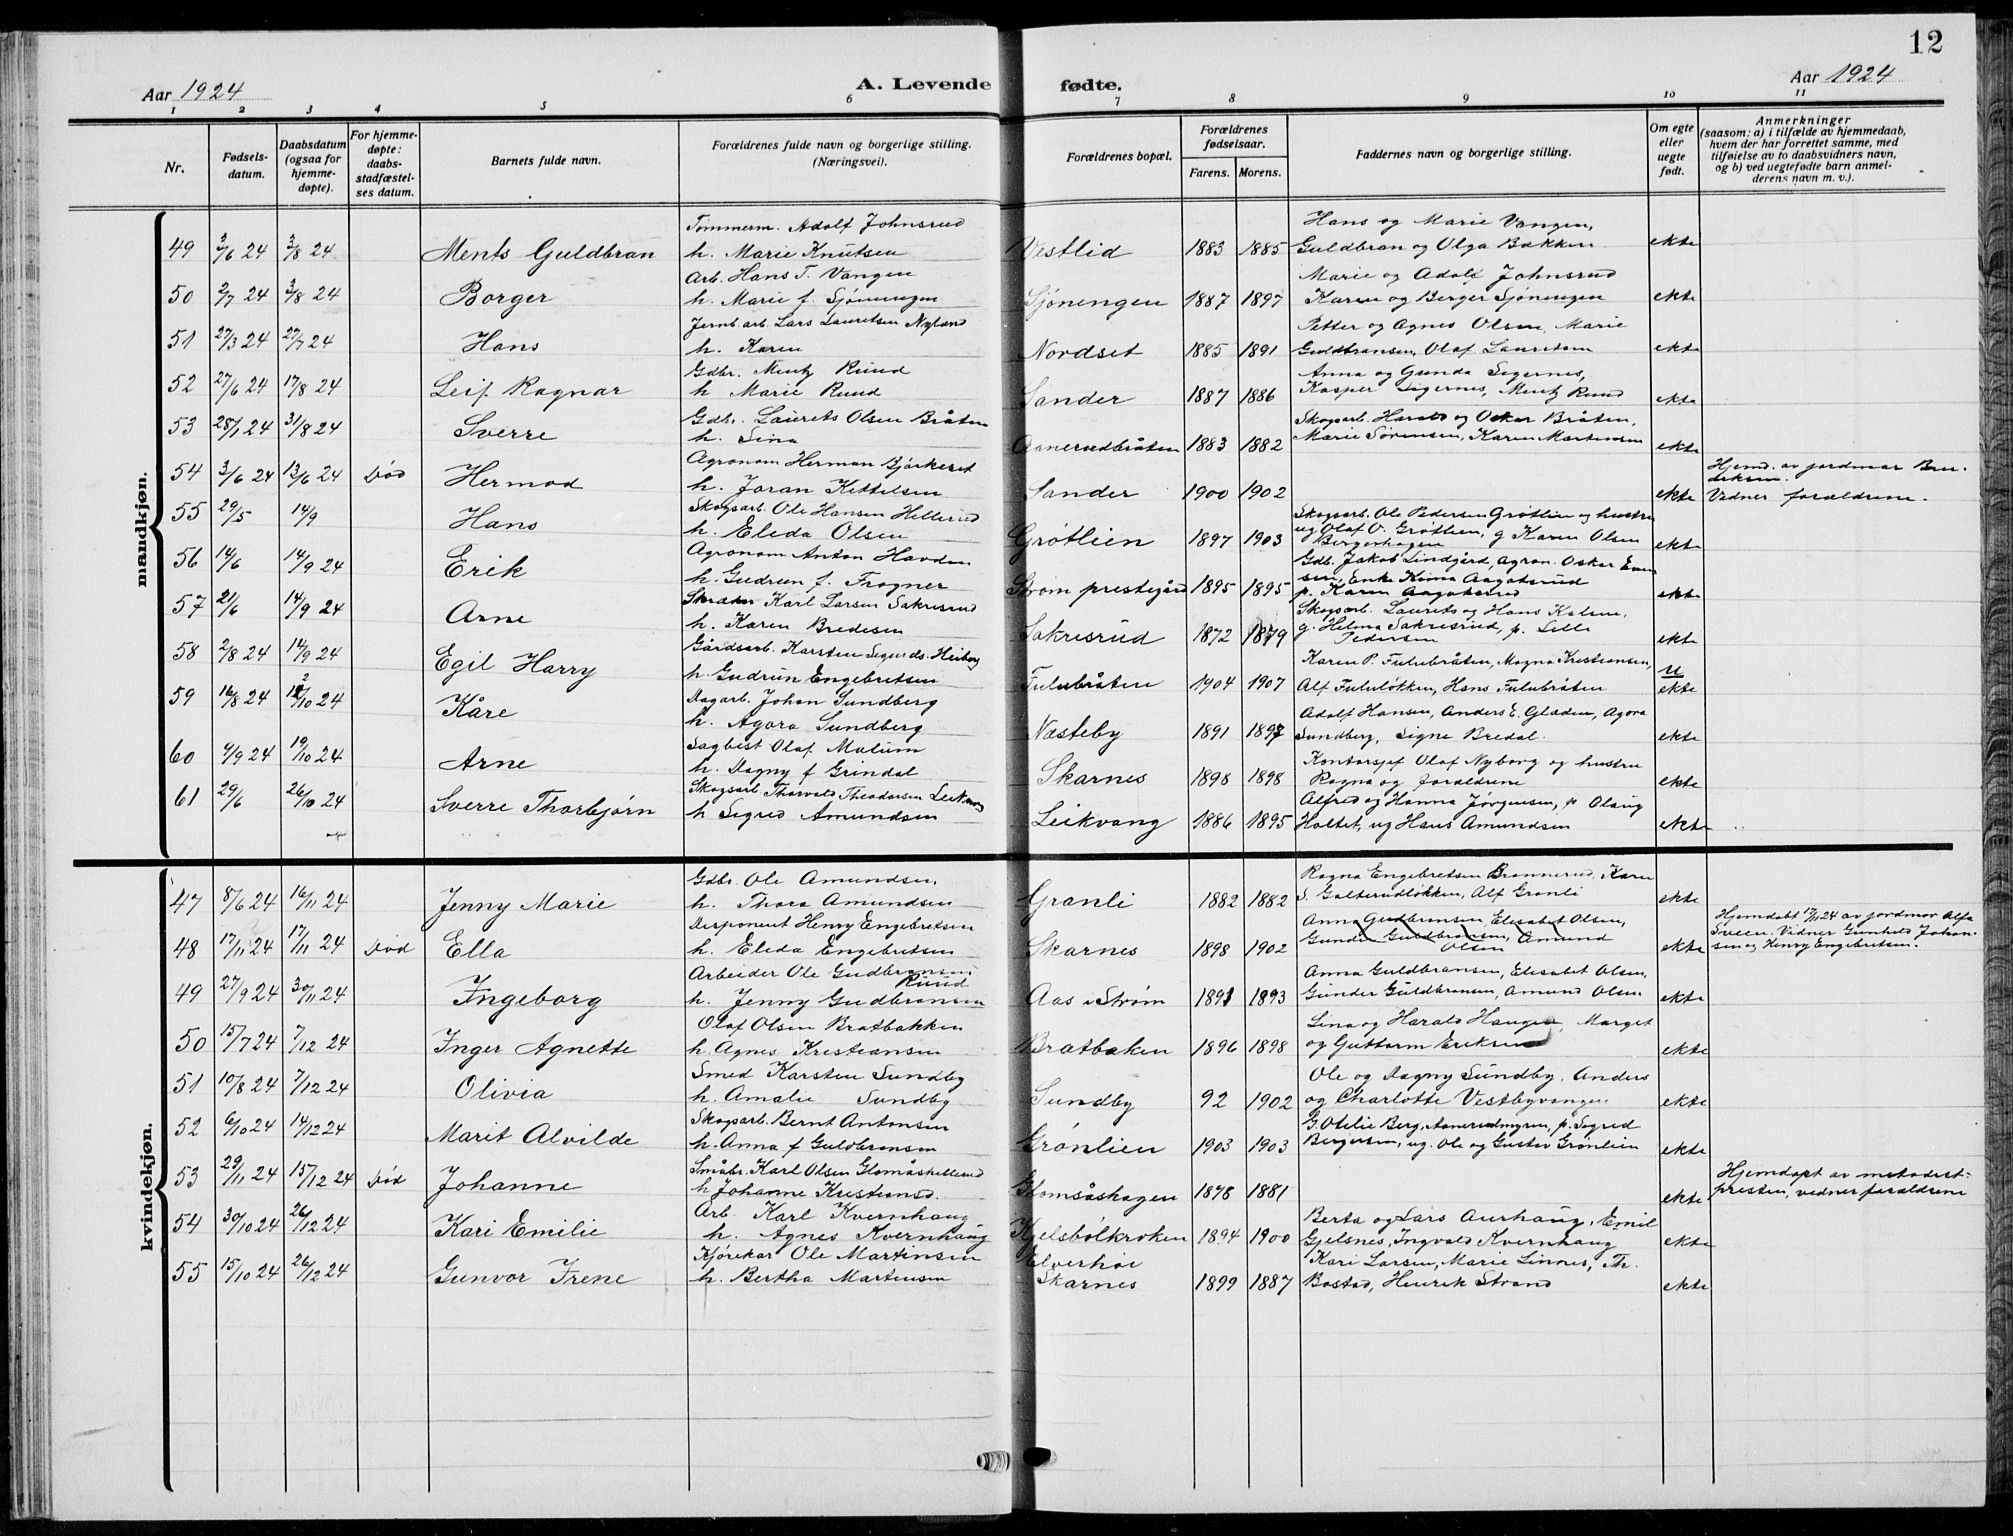 12
Aar 1924 A. Levende fødte. Aar 1924
1 2 3 4 5 6 7 8 9 10 11
Nr. Fødselsdatum. Daabsdatum (ogsaa for hjemmedøpte). For hjemmedøpte: daabsstadfæstelses datum. Barnets fulde navn. Forældrenes fulde navn og borgerlige stilling. (Næringsvei). Forældrenes bopæl. Forældrenes fødselsaar. Farens. Morens. Faddernes navn og borgerlige stilling. Om egte eller uegte født. Anmerkninger (saasom: a) i tilfælde av hjemmedaab, hvem der har forrettet samme, med tilføielse av to daabsvidners navn, og b) ved uegtefødte barn anmelderens navn m. v.).
mandkjøn.
Tømmerm. Adolf Johnsrud Hans og Marie Vangen,
49 3/6 24 3/8 24 Ments Guldbran h. Marie Knutsen Vestlid 1883 1885 Guldbran og Olga Bakken ekte
Arb. Hans T. Vangen Marie og Adolf Johnsrud
50 2/7 24 3/8 24 Borger h. Marie f. Sjøningen Sjøningen 1887 1897 Karen og Berger Sjøningen ekte
Jernb.arb. Lars Lauritsen Nyland Petter og Agnes Olsen, Marie
51 27/3 24 27/7 24 Hans h. Karen Nordset 1885 1891 Guldbransen, Olaf Lauritsen ekte
Gdbr. Mentz Ruud Anna og Gunda Sigernes,
52 27/6 24 17/8 24 Leif Ragnar h Marie Ruud Sander 1887 1886 Kasper Sigernes, Mentz Ruud ekte
Gdbr. Laurits Olsen Bråten Skogsarb. Harald og Oskar Bråten,
53 28/1 24 31/8 24 Sverre h. Sina Aanerudbråten 1883 1882 Marie Sørensen, Karen Martinsen ekte
Agronom Herman Bjørkeset Hjemd. av jordmor
54 3/6 24 13/6 24 Død Hermod h. Joran Kittelsen Sander 1900 1902 ekte Vidner forældrene.
Skogsarb. Ole Hansen Hellerud Skogsarb. Ole Pedersen Grøtlien og hustru
55 29/5 14/9 Hans h. Eleda Olsen Grøtlien 1897 1903 ug Olaf O. Grøtlien, g Karen Olsen Bergerhagen ekte
Agronom Anton Gdb. Jakob Lindgård, Agron. Oskar
56 14/6 14/9 24 Erik h. Gudrun f. Frogner Strøm prestegård 1895 1895 p. Karen Aagotsrud ekte
Skræder Karl Larsen Sakrisrud Skogsarb. Laurits og Hans
57 21/6 14/9 24 Arne h. Karen Bredesen Sakrisrud 1872 1879 g. Helma Sakrisrud, p. Lilli Pedersen ekte
Gårdsarb. Karsten Sigurds. Heiberg Karen P. Fulubråten, Magna Kristiansen,
58 2/8 24 14/9 24 Egil Harry h. Gudrun Engebretsen Fulubråten 1904 1907 Alf Fululøkken, Hans Fulubråten u ekte
Dagarb. Johan Sundberg Adolf Hansen, Anders E. Gladen, Agora
59 16/8 24 12/10 24 Kåre h. Agora Sundberg Næsteby 1891 1897 Sundberg, Signe Bredal. ekte
Sagbest Olaf Malum Kontorsjef Olaf Nyborg og hustru
60 4/9 24 19/10 24 Arne h. Dagny f Grindal Skarnes 1898 1898 Ragna og forældrene ekte
Skogsarb Thorvald Theodorsen Leikvang Alfred og Hanna Jørgensen, p Olaug
61 29/6 26/10 24 Sverre Thorbjørn h Sigrid Amundsen Leikvang 1886 1895 Holtet, ug Hans Amundsen ekte
kvindekjøn.
Gdbr. Ole Amundsen. Ragna Engebretsen Brønnerud, Karen
47 8/6 24 16/11 24 Jenny Marie h. Thora Amundsen Granli 1882 1882 S. Galterudløkken, Alf Granli ekte
Disponent Henry Engebretsen Anna Gudbransen Elisabet Olsen, Hjemdøbt 17/11 24 av jordmor Alfa
48 17/11 24 17/11 24 Død Ella h. Eleda Engebretsen Skarnes 1898 1902 Gunder Guldbransen, Amund Olsen ekte Sveen. Vidner Gunhild Johansen og Henry Engebretsen.
Arbeider Ole Gudbransen Ruud Anna Guldbransen, Elisabet Olsen,
49 27/9 24 30/11 24 Ingeborg h. Jenny Gudbransen Aas i Strøm 1891 1893 Gunder Guldbransen, Amund Olsen ekte
Olaf Olsen Bratbakken Lina og Harald Haugen, Marget
50 15/7 24 7/12 24 Inger Agnette h. Agnes Kristiansen Bratbaken 1896 1898 og Guttorm Eriksen ekte
Smed Karsten Sundby Ole og Dagny Sundby, Anders
51 10/8 24 7/12 24 Olivia h. Amalie Sundby Sundby 92 1902 og Charlotte Vestbyvangen ekte
Skogsarb. Bernt Antonsen G. Otilie Berg, Aanerudmyren, p. Sigrid
52 6/10 24 14/12 24 Marit Alvilde h. Anna f Guldbransen Grønlien 1903 1903 Bergersen, ug. Ole og Gustav Grønlien ekte
Småbr. Karl Olsen Hjemdøpt av metodist-
53 29/11 24 15/12 24 Død Johanne h Johanne Kristiansd. Glomsåshagen 1878 1881 ekte presten, vidner forældrene
Arb. Karl Kvernhaug Berta og Lars Aurhaug, Emil
54 30/10 24 26/12 24 Kari Emilie h. Agnes Kvernhaug Kjelsbølkroken 1894 1900 Gjelsnes, Ingvald Kvernhaug ekte
Kjørekar Ole Martinsen Elverhøi Kari Larsen, Marie Linnes, Th.
55 15/10 24 26/12 24 Gunvor Irene h. Bertha Martinsen Skarnes 1899 1887 Bostad, Henrik Strand ekte